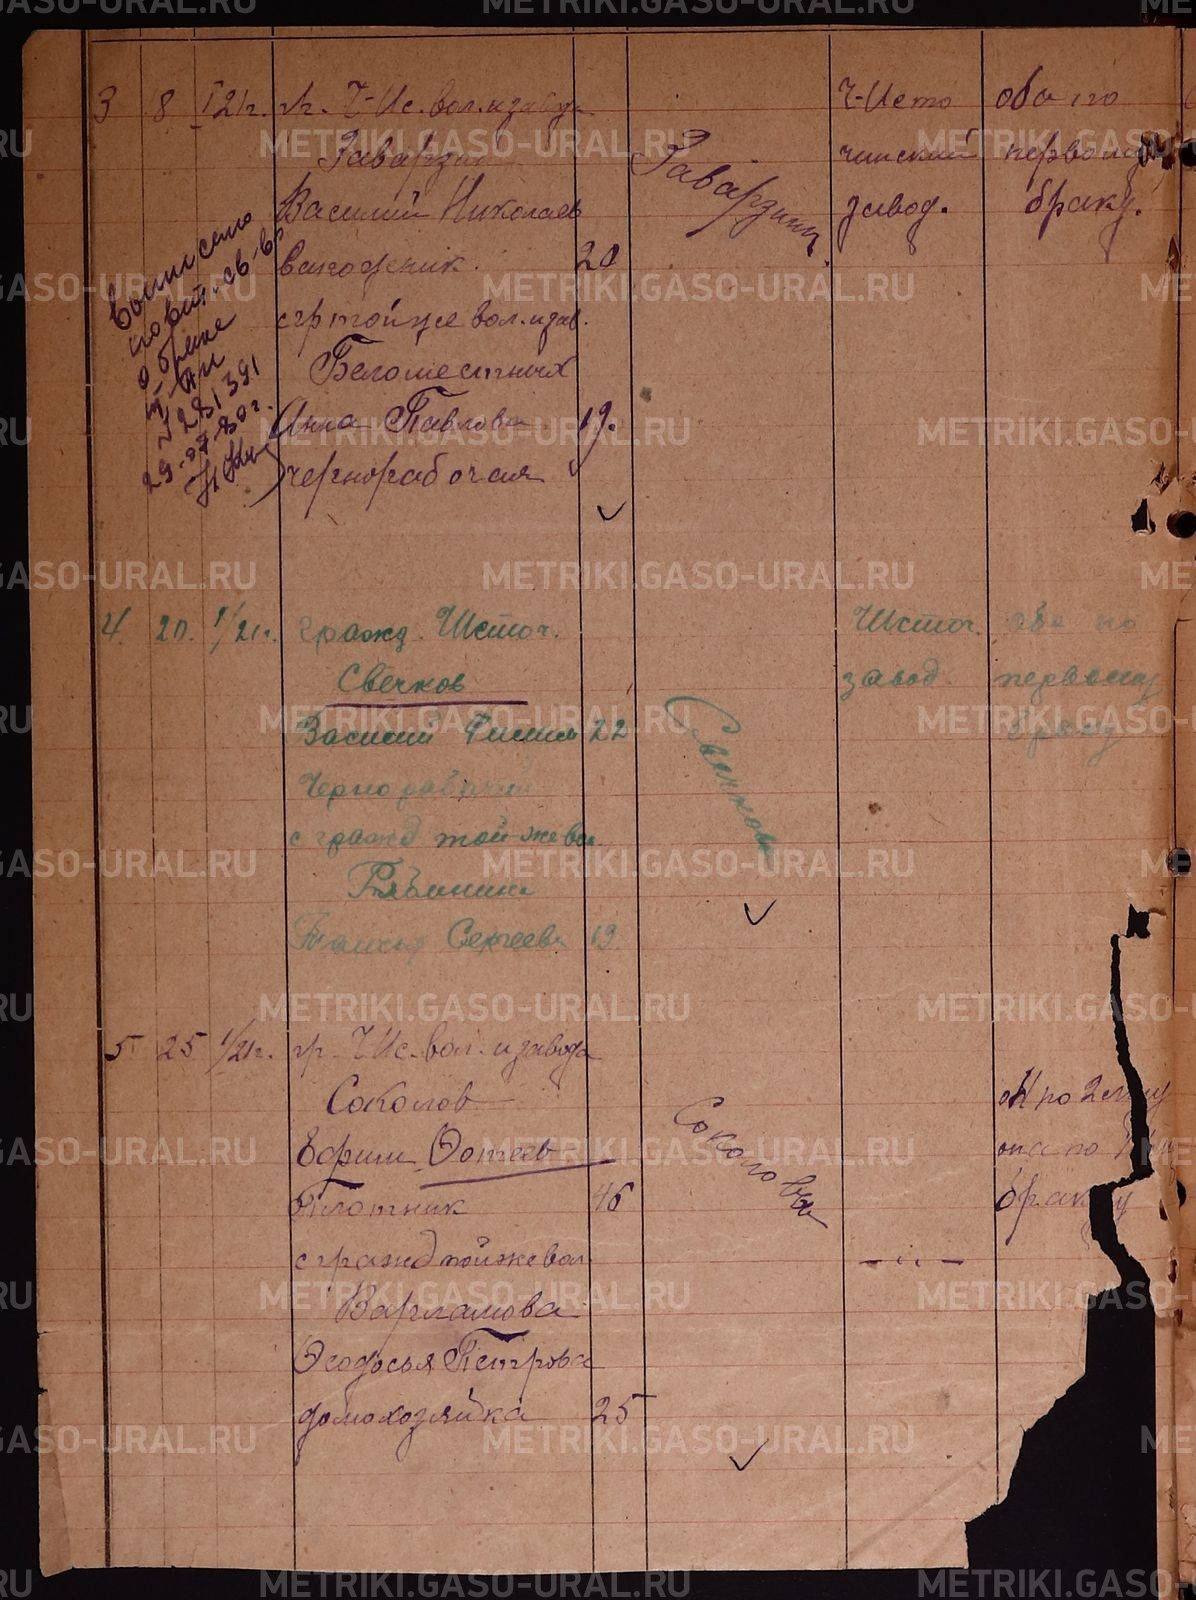 3 8 I 21г. гр. Ч-Ис. вол. и завода
Заварзин
Василий Николаев
20
с гр той же вол. и зав.
Беломестных
Анна Павлова 19.
чернорабочая
Заварзины.
Ч-Исто
чинский
завод.
оба по
первому
браку.
выписано
повт. св-во
о браке
29-07-80г.
4. 20. 1/21г. гражд. Исток.
Свечков
Василий 22
Чернорабочий
с гражд той-же вол.
Сергеева 19.
Свечковы
Исток.
завод.
оба по
первому
браку
5 25 1/21г. гр. Ч Ис. вол. и завода
Соколов
Ефим Фотеев
Плотник 46
с гражд той же вол.
Варламова
Феодосья Петрова
домохозяйка 25
Соколовы
- " -
он по 2 му
она по
браку
METRIKI.GASO-URAL.RU